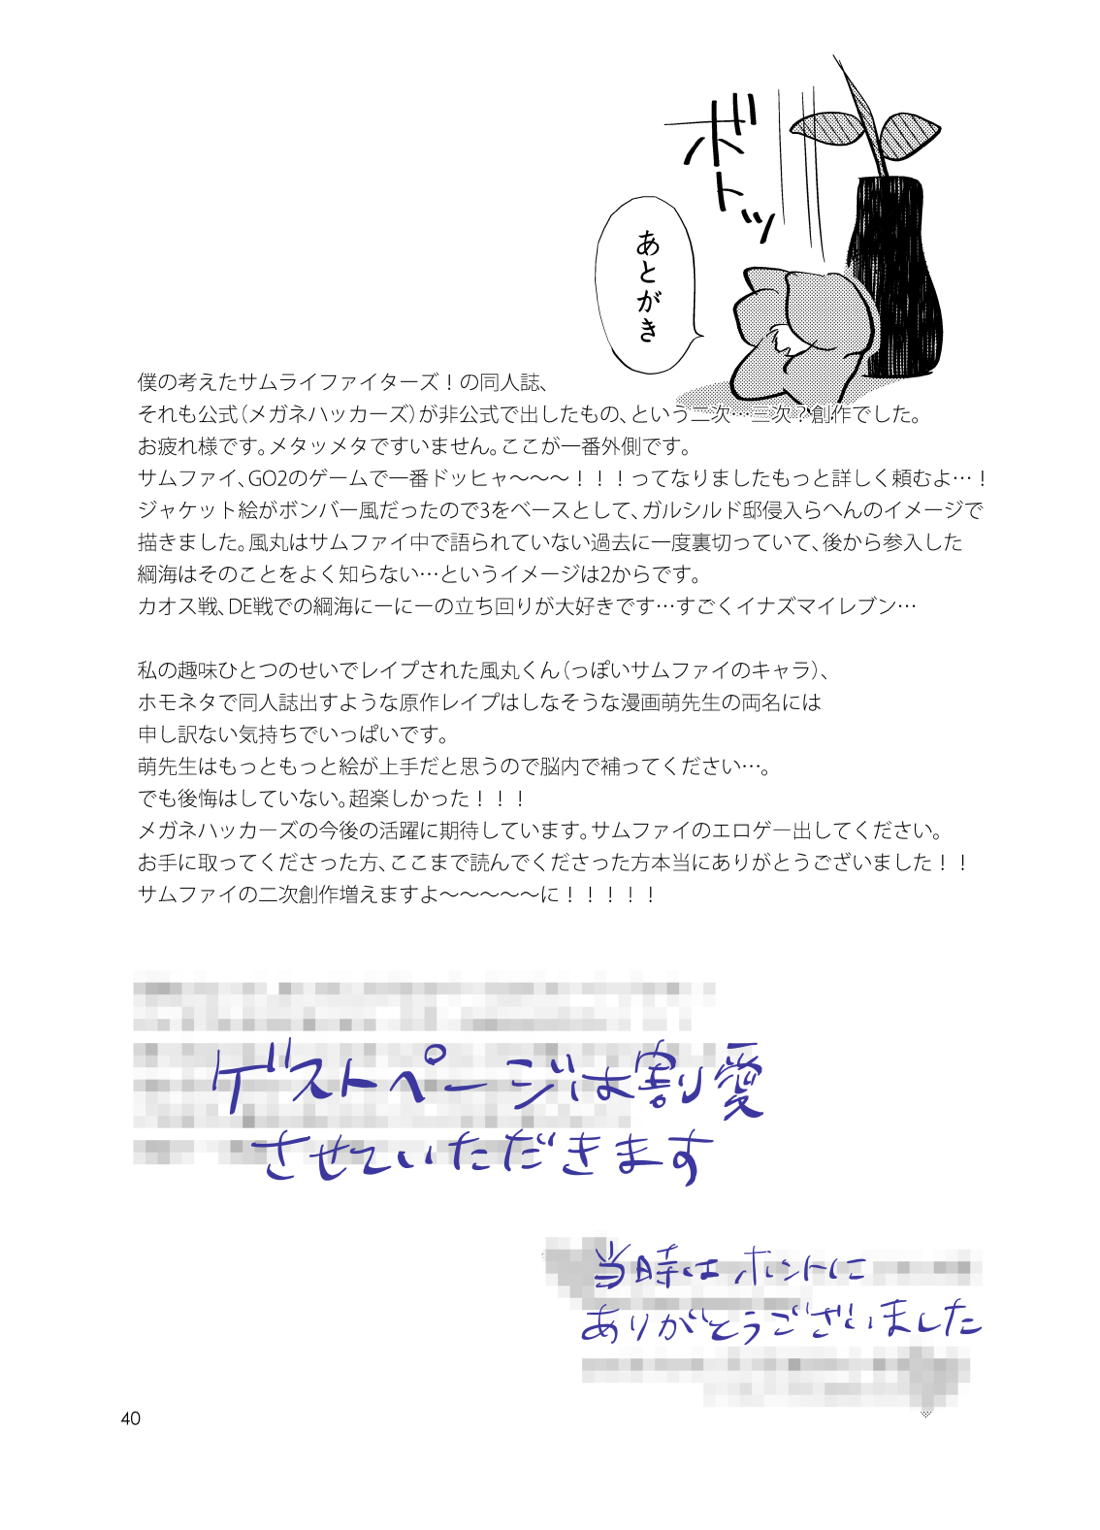 ボトッ
あとがき
僕の考えたサムライファイターズ！の同人誌、
それも公式（メガネハッカーズ）が非公式で出したもの、という二次…三次？創作でした。
お疲れ様です。メタッメタですいません。ここが一番外側です。
サムファイ、GO2のゲームで一番ドッヒャ～～～！！！ってなりましたもっと詳しく頼むよ…！
ジャケット絵がボンバー風だったので3をベースとして、ガルシルド邸侵入らへんのイメージで
描きました。風丸はサムファイ中で語られていない過去に一度裏切っていて、後から参入した
綱海はそのことをよく知らない…というイメージは2からです。
カオス戦、DE戦での綱海にーにーの立ち回りが大好きです…すごくイナズマイレブン…
私の趣味ひとつのせいでレイプされた風丸くん（っぽいサムファイのキャラ）、
ホモネタで同人誌出すような原作レイプはしなそうな漫画萌先生の両名には
申し訳ない気持ちでいっぱいです。
萌先生はもっともっと絵が上手だと思うので脳内で補ってください…。
でも後悔はしていない。超楽しかった！！！
メガネハッカーズの今後の活躍に期待しています。サムファイのエロゲー出してください。
お手に取ってくださった方、ここまで読んでくださった方本当にありがとうございました！！
サムファイの二次創作増えますよ～～～～～に！！！！！
ゲストページは割り愛
させていただきます
当時はホントに
ありがとうございました
40